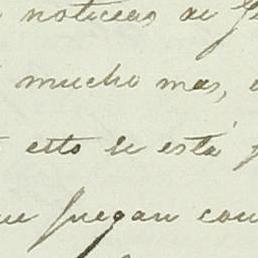 noticias de
mucho mas,
esto se está
juegan con